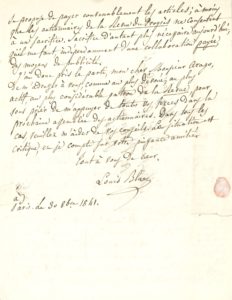 se propose de payer convenablement les articles; à moins
que les actionnaires de la Revue du Progrès ne consentent
à un sacrifice, sacrifice d'autant plus nécessaire aujourd'hui,
qu'il me faut, indépendamment d'une collaboration payée,
des moyens de publicité.
J'ai donc pris le parti, mon cher Monsieur Arago,
de m'adresser à vous, comme au plus dévoué, au plus
actif, au plus considérable patron de la Revue, pour
vous prier de m'appuyer de toutes vos forces dans la
prochaine assemblée des actionnaires. Dans tous les
cas, veuillez m'aider de vos conseils. La situation est
critique, et je compte sur votre puissante amitié.
Tout à vous de cœur,
Louis Blanc
à
Paris, ce 30 8bre 1841.